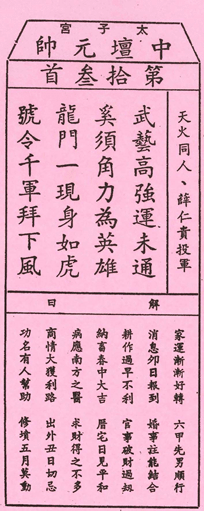 太子宮
中壇元帥
第拾叁首
天火同人、薛仁貴投軍
武藝高強運未通
奚須角力為英雄
龍門一現身如虎
號令千軍拜下風
解曰
家運漸漸好轉 六甲先男順行
消息卯日報到 婚事註能結合
耕作過早不利 官事破財過短
納畜春中大吉 厝宅日見平和
病應南方之醫 求財得之不多
商情大獲利路 出外丑日切忌
功名有人幫助 修墳五月莫動